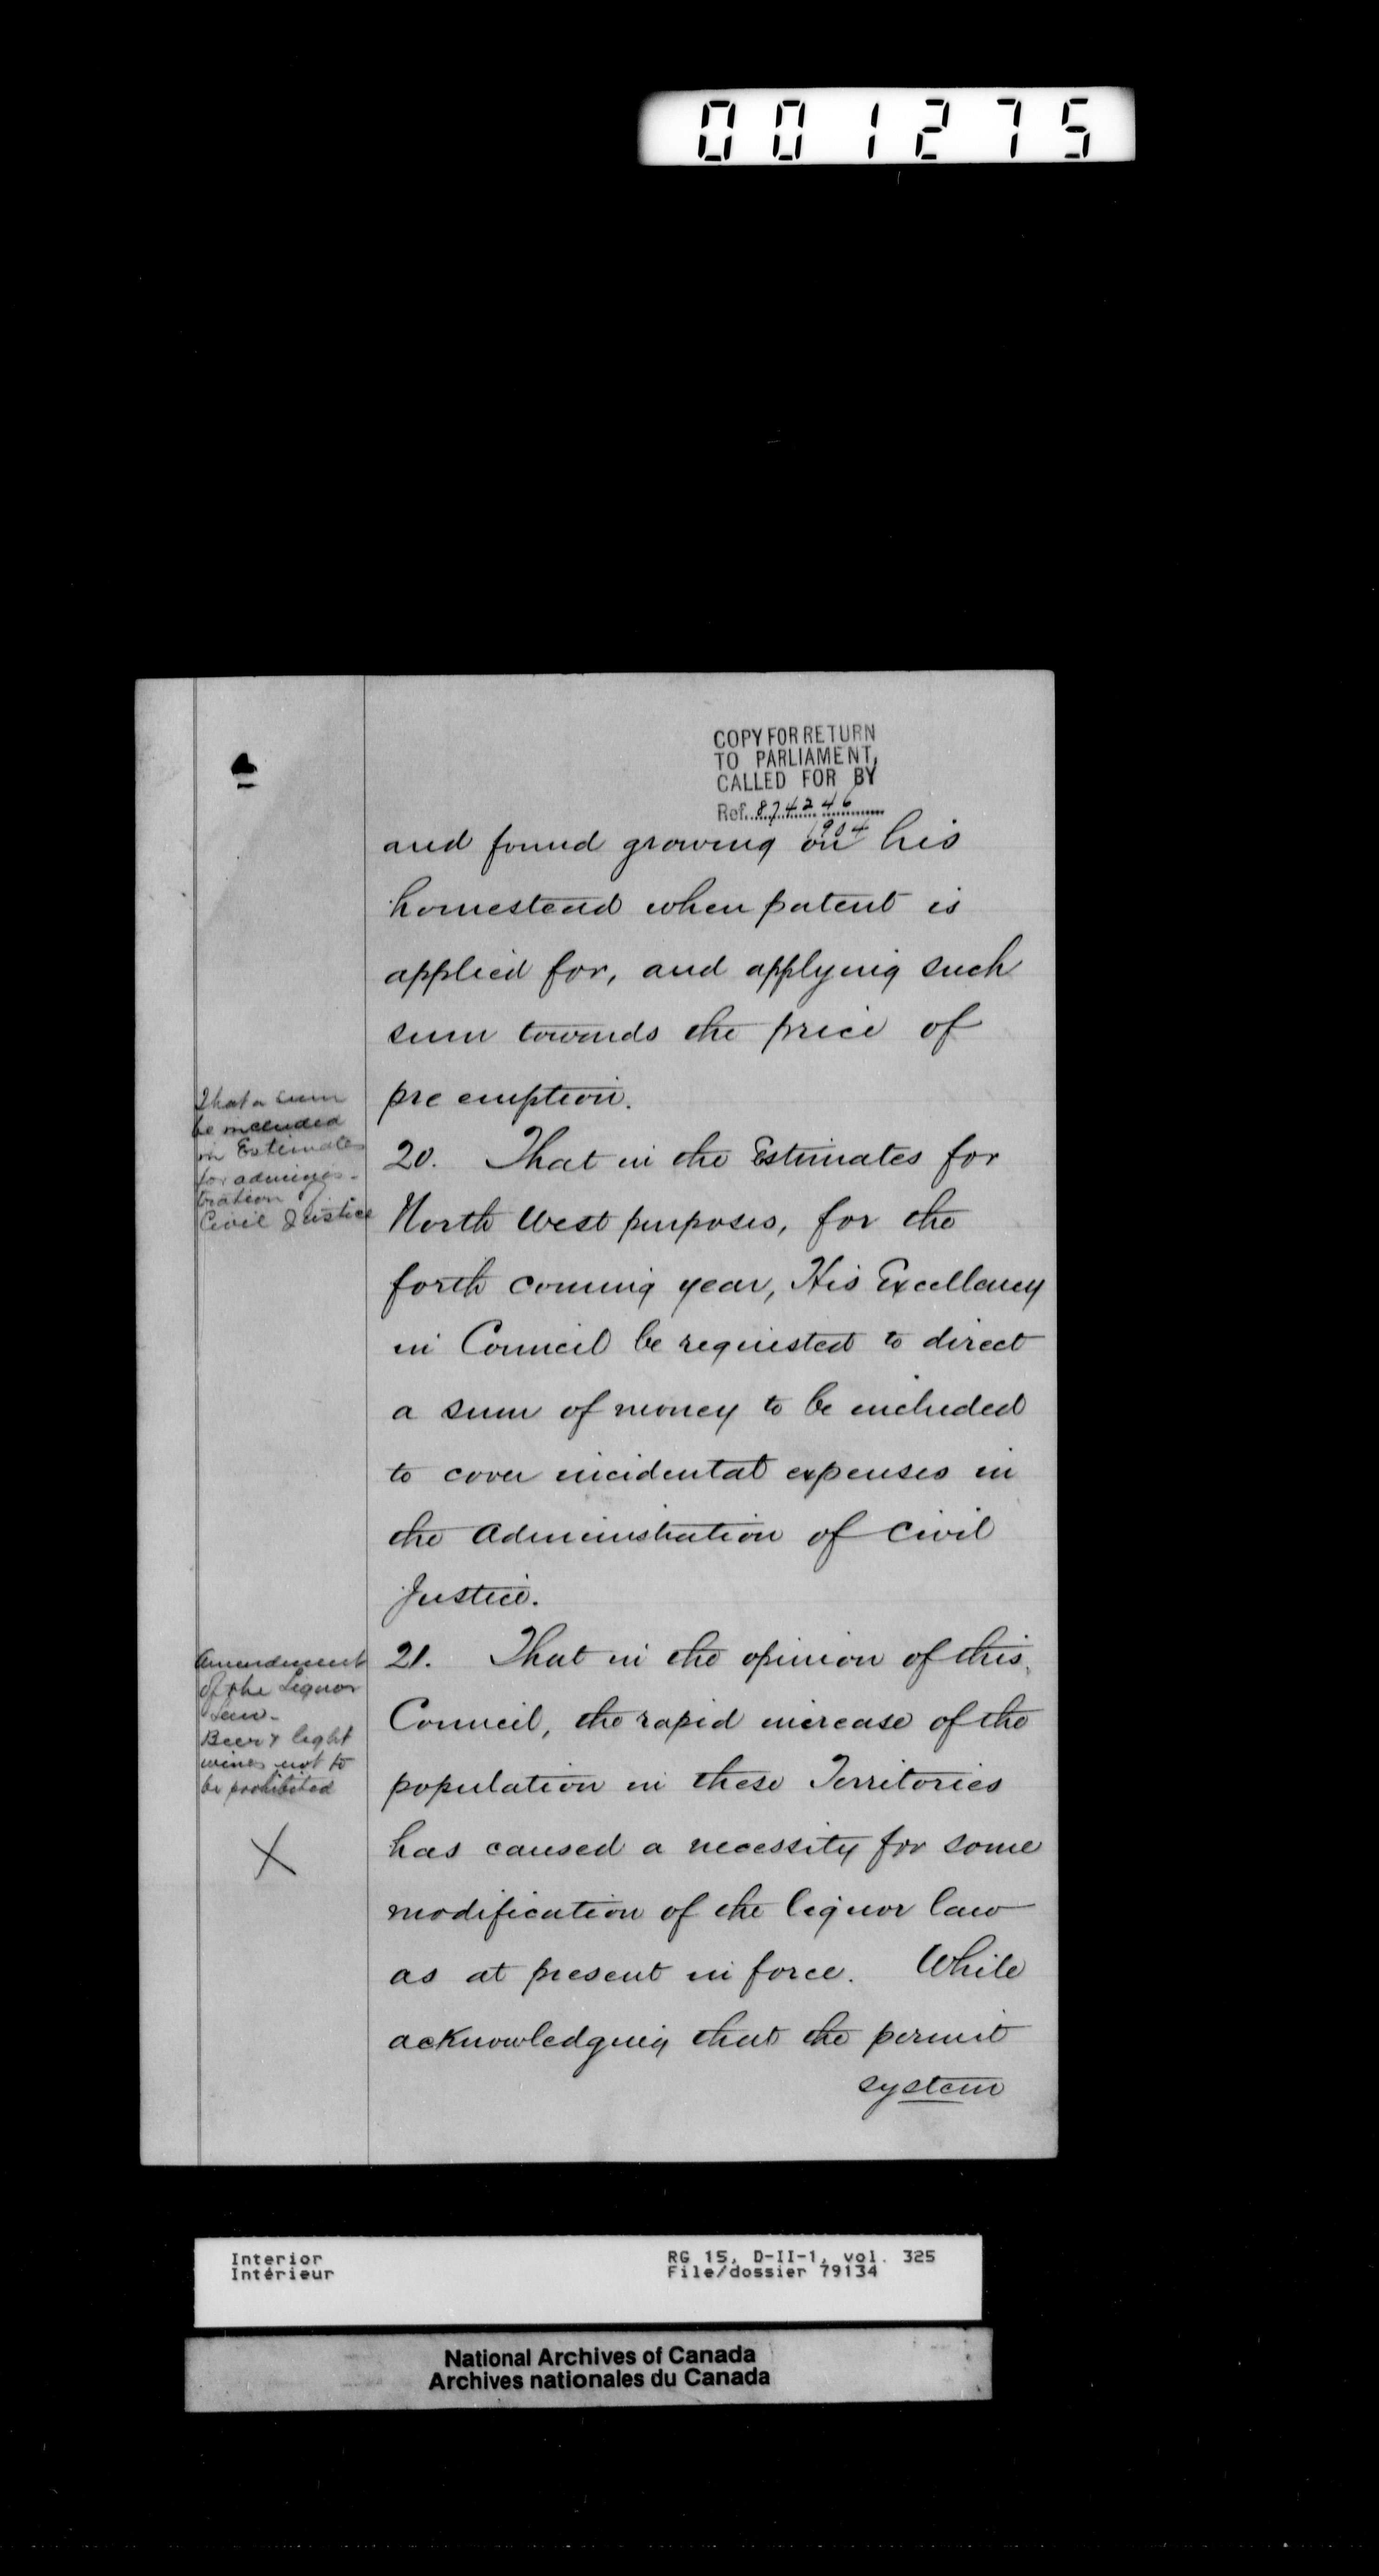 001275
COPY FOR RETURN
TO PARLIAMENT,
CALLED FOR BY
Ref. 874246
1904
and found growing on his
homestead when patent is
applied for, and applying such
sum towards the price of
pre emption.
That a sum
be included
in Estimates
for adminis-
tration of
Civil Justice
20. That in the Estimates for
North West purposes, for the
forth coming year, His Excellency
in Council be requested to direct
a sum of money to be included
to cover incidental expenses in
the Administration of Civil
Justice.
Amendment
of the Liquor
Law-
Beer & light
wines not to
be prohibited
X
21. That in the opinion of this
Council, the rapid increase of the
population in these Territories
has caused a necessity for some
modification of the liquor law
as at present in force. While
acknowledging that the permit
system
Interior
Intérieur
RG 15, D-II-1, vol. 325
File/dossier 79134
National Archives of Canada
Archives nationales du Canada